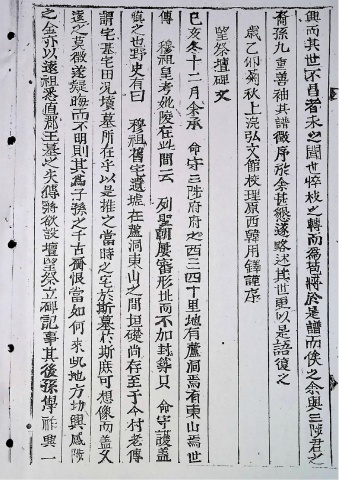 興而其世不昌者未之聞也悴枝之轉而爲菀將於是譜而俟之余與三陟君之
裔孫九重善袖其譜徵序於余甚懇遂略述其世更以是語復之
歲乙卯菊秋上浣弘文館校理原西韓用鐸謹序
望祭壇碑文
己亥冬十二月余承 命守三陟府府之西三四十里地有蘆洞焉有東山焉世
傳 穆祖皇考妣陵在此間云 列聖朝屢審形址而不加封 只 命守護蓋
愼之也野史有曰 穆祖舊宅遺墟在蘆洞東山之間垣礎尚存至于今村老傳
謂宅基宅田況墳墓所在乎以是推之當時之宅於斯墓於斯庶可想像而蓋又
遠之莫徵遂疑晦而不明則其爲子孫之千古 恨當如何來 地方切興感陟
之金亦以遠祖悉直郡王墓之失傳將欲設壇望祭立碑記事其後孫學祚興一